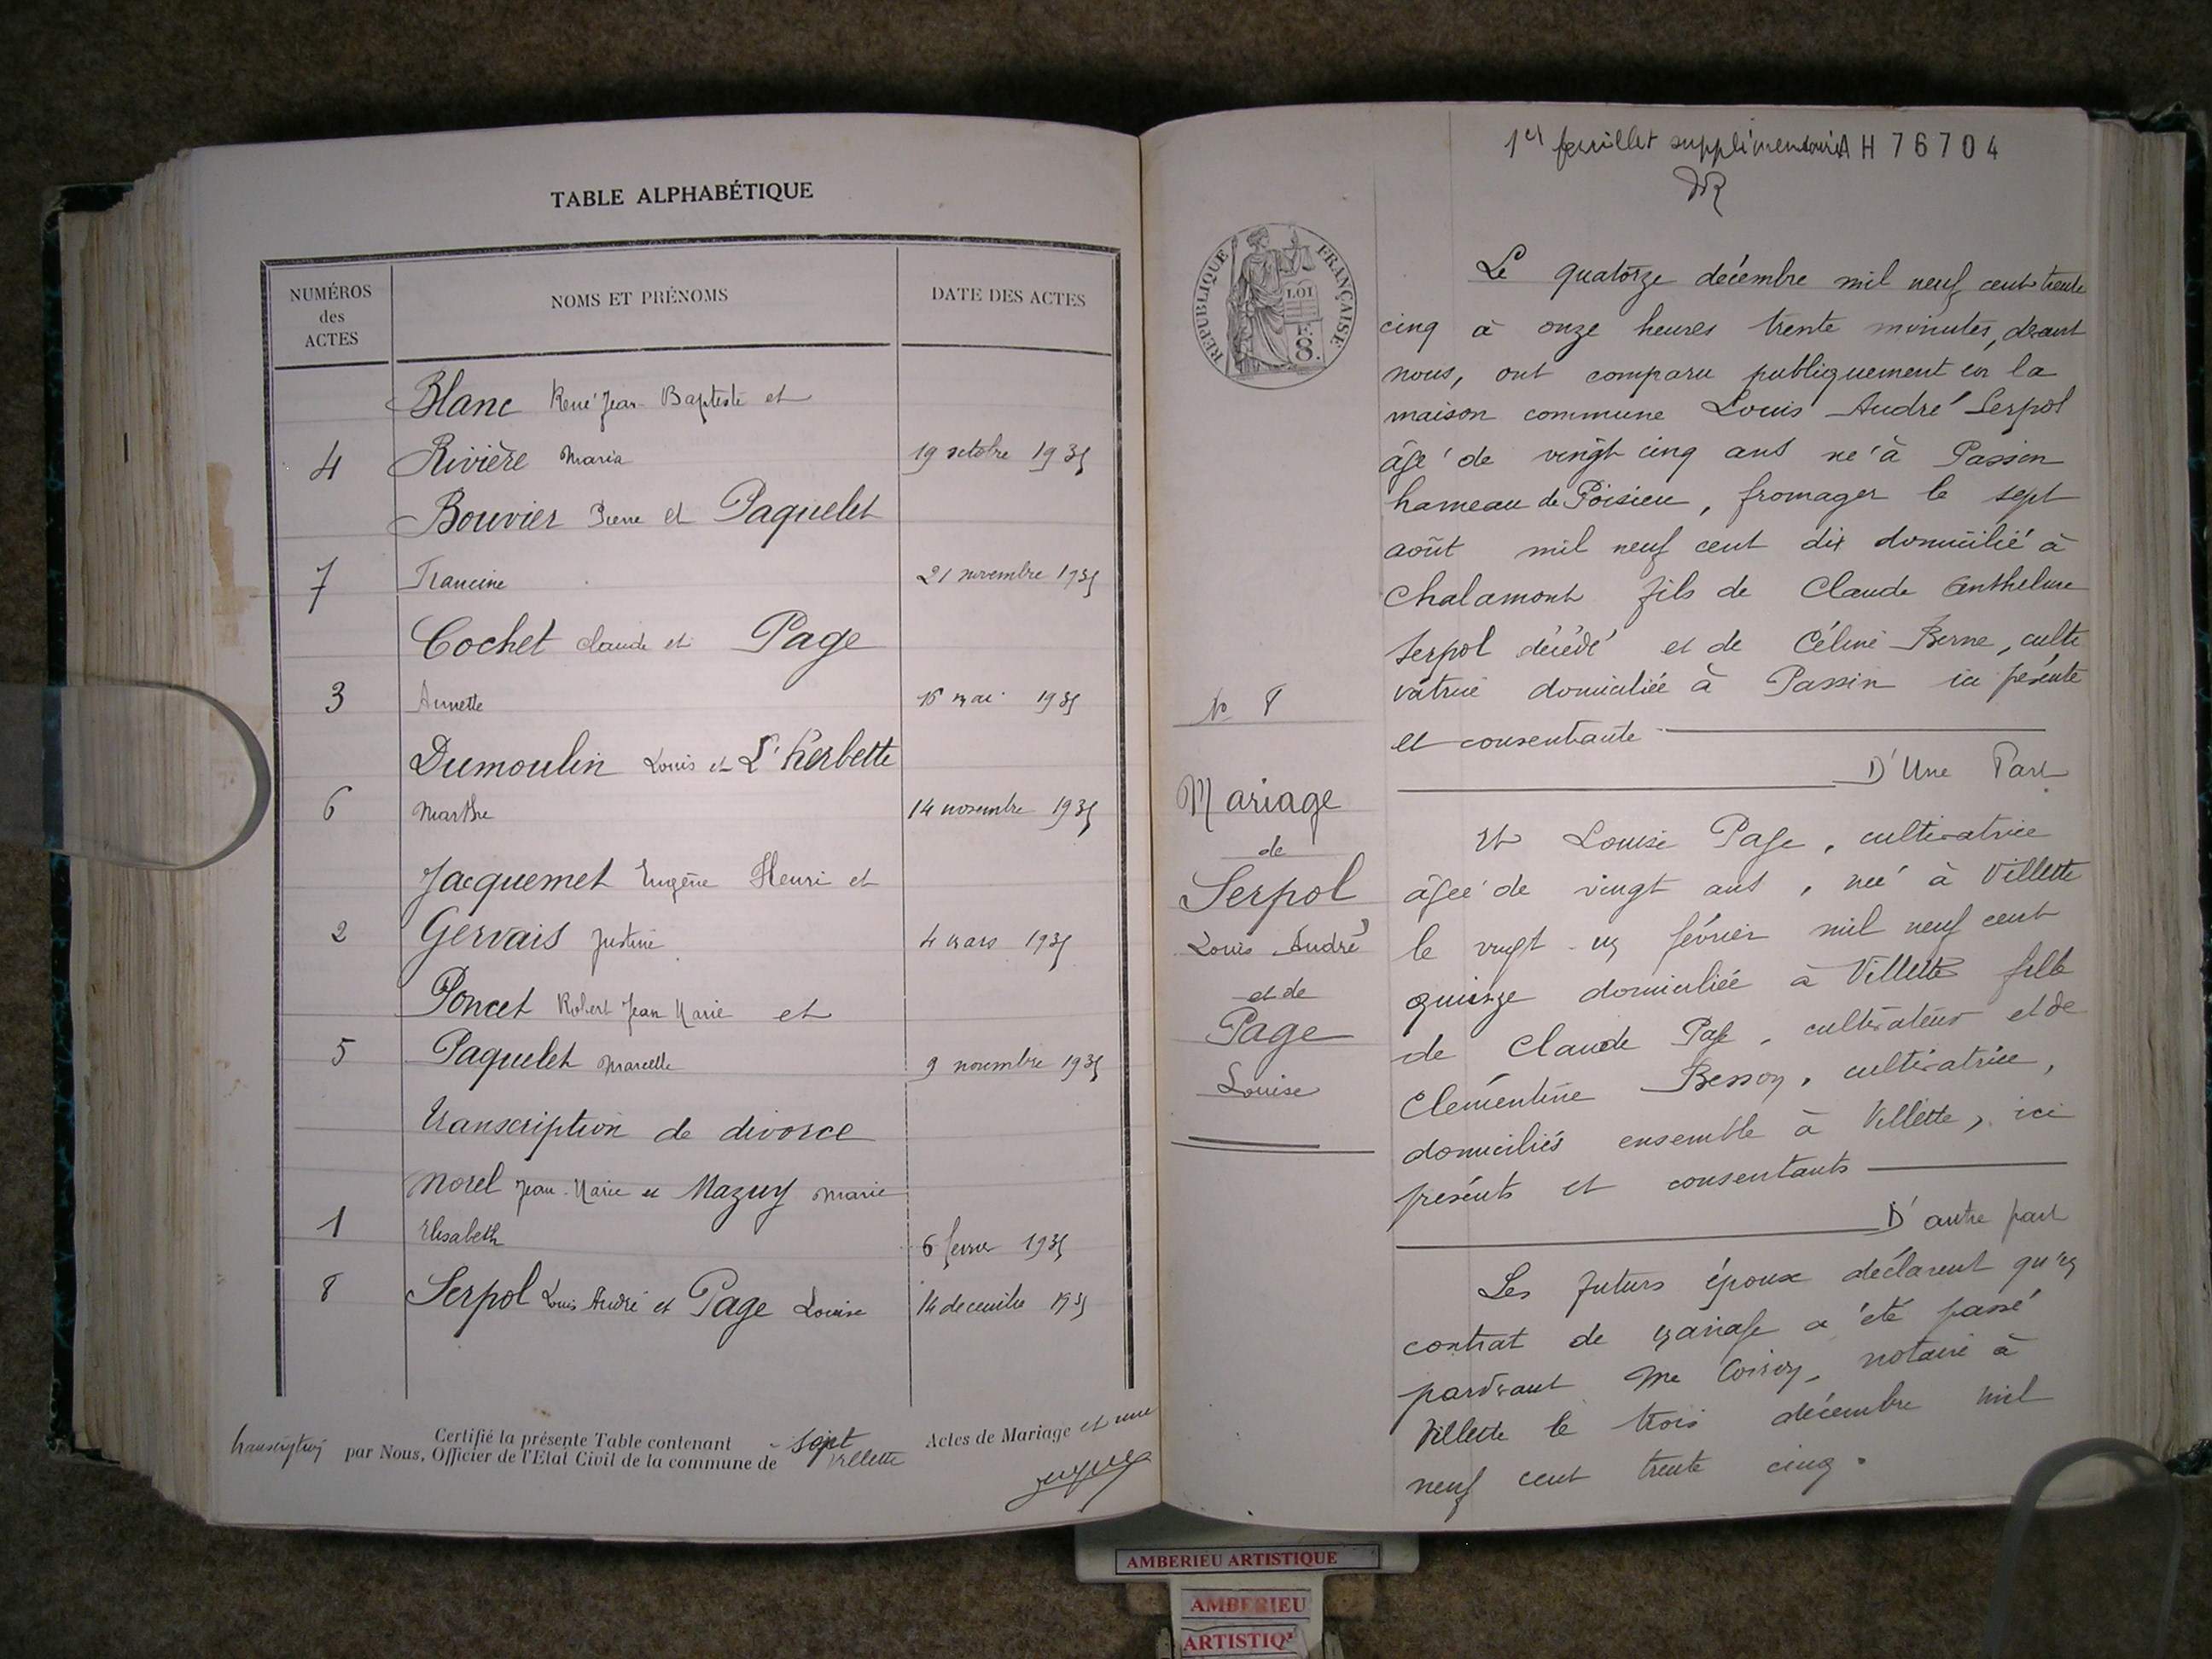 TABLE ALPHABÉTIQUE
NUMÉROS
des
ACTES
NOMS ET PRÉNOMS
DATE DES ACTES
Blanc René Jean-Baptiste et
4 Rivière Maria 19 octobre 1935
Bouvier Pierre et Paquelet
7 Francine 21 novembre 1935
Cochet Claude et Page
3 Annette 16 mai 1935
Dumoulin Louis et L'herbette
6 Marthe 14 novembre 1935
Jacquemet Eugène Henri et
2 Gervais Justine 4 mars 1935
Poncet Robert Jean Marie et
5 Paquelet Marcelle 9 novembre 1935
transcription de divorce
Morel Jean-Marie et Mazuy Marie
1 Elisabeth 6 fevrier 1935
8 Serpol Louis André et Page Louise 14 decembre 1935
Certifié la présente Table contenant sept Actes de Mariage et une
transcription par Nous, Officier de l'Etat Civil de la commune de Villette
1er feuillet supplémentaire AH 76704
RÉPUBLIQUE FRANÇAISE
LOI
F.
8.
Le quatorze décembre mil neuf cent trente
cinq à onze heures trente minutes, devant
nous, ont comparu publiquement en la
maison commune Louis André Serpol
âgé de vingt cinq ans né à Passin
hameau de Poisieu, fromager le sept
août mil neuf cent dix domicilié à
Chalamont fils de Claude Anthelme
Serpol décédé et de Céline Berne, culti
vatrice domiciliée à Passin ici présente
et consentante
D'Une Part
No 8
Mariage
de
Serpol
Louis André
et de
Page
Louise
Et Louise Page, cultivatrice
âgée de vingt ans, née à Villette
le vingt un février mil neuf cent
quinze domiciliée à Villette fille
de Claude Page, cultivateur et de
Clémentine Besson, cultivatrice,
domiciliés ensemble à Villette, ici
présents et consentants
D'autre part
Les futurs époux déclarent qu'un
contrat de mariage a été passé
pardevant Me notaire à
Villette le trois décembre mil
neuf cent trente cinq.
AMBERIEU ARTISTIQUE
AMBERIEU
ARTISTIQ